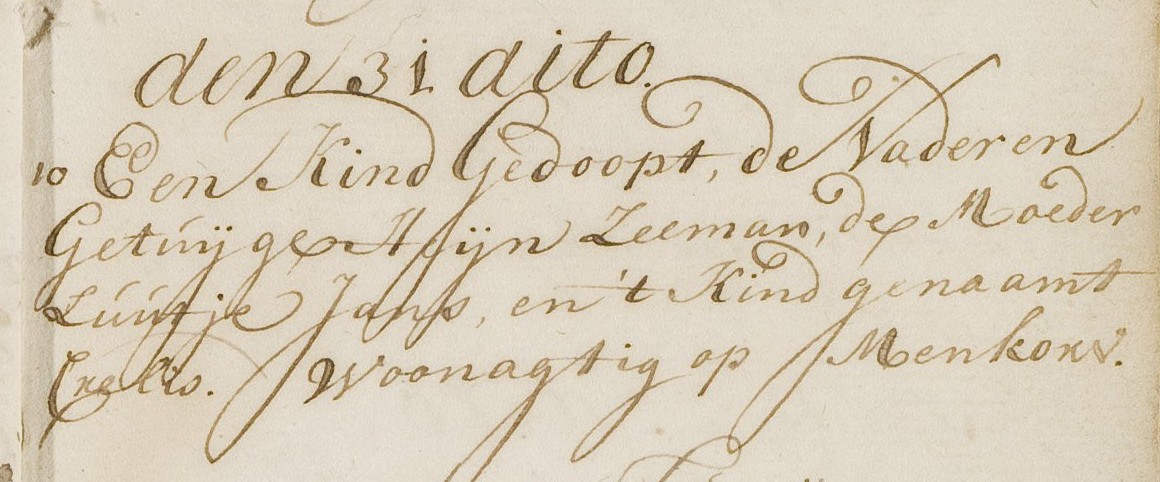 den 31 dito.
10 Een Kind Gedoopt, de Vader en
Getuijge Stijn Zeeman, de Moeder
Luutje Jans, en 't Kind genaamt
Crelis. Woonagtig op Menkorv.